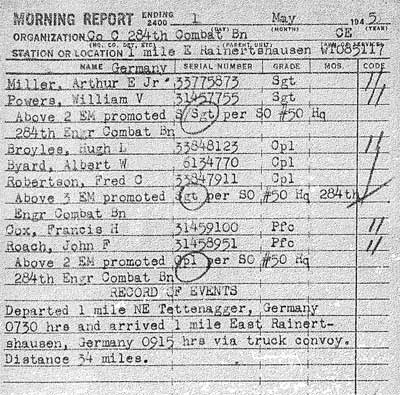 MORNING REPORT ENDING 2400 1 May 1945
(DAY) (MONTH) (YEAR)
ORGANIZATION Co C 284th Combat Bn CE
(NO. CO. DET. ETC) (PARENT UNIT) (ARM OR SERVICE)
STATION OR LOCATION 1 mile E Rainertshausen
Germany
NAME SERIAL NUMBER GRADE MOS. CODE
Miller, Arthur E Jr 33775873 Sgt //
Powers, William V 31457755 Sgt //
Above 2 EM promoted S/Sgt per SO #50 Hq
284th Engr Combat Bn
Broyles, Hugh L 33848123 Cpl //
Byard, Albert W 6134770 Cpl
Robertson, Fred C 33847911 Cpl
Above 3 EM promoted Sgt per SO #50 Hq 284th
Engr Combat Bn
Cox, Francis H 31459100 Pfc //
Roach, John F 31458951 Pfc //
Above 2 EM promoted Cpl per SO #50 Hq
284th Engr Combat Bn
RECORD OF EVENTS
Departed 1 mile NE Tettenagger, Germany
0730 hrs and arrived 1 mile East Rainert-
shausen, Germany 0915 hrs via truck convoy.
Distance 34 miles.